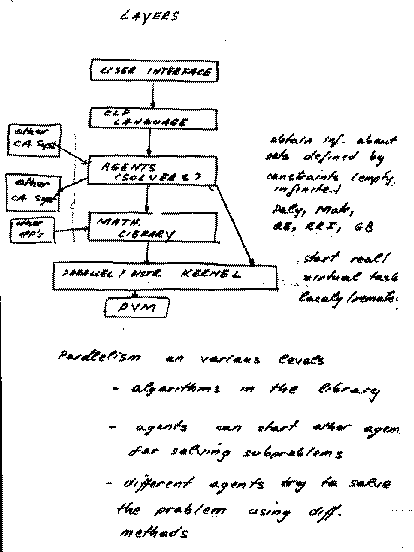 LAYERS
USER INTERFACE
ELP
LANGUAGE
other
CA Syst
AGENTS
(SOLVERS?)
other
CA Syst
other
APP's
MATH.
LIBRARY
PARALLEL / DISTR. KERNEL
PVM
obtain inf. about
sets defined by
constraints (empty,
infinite)
Poly, Mate,
QE, RRI, GB
start real/
virtual task
localy/remote
Parallelism on various levels
- algorithms in the library
- agents can start other agen
for solving subproblems
- different agents try to solve
the problem using diff.
methods